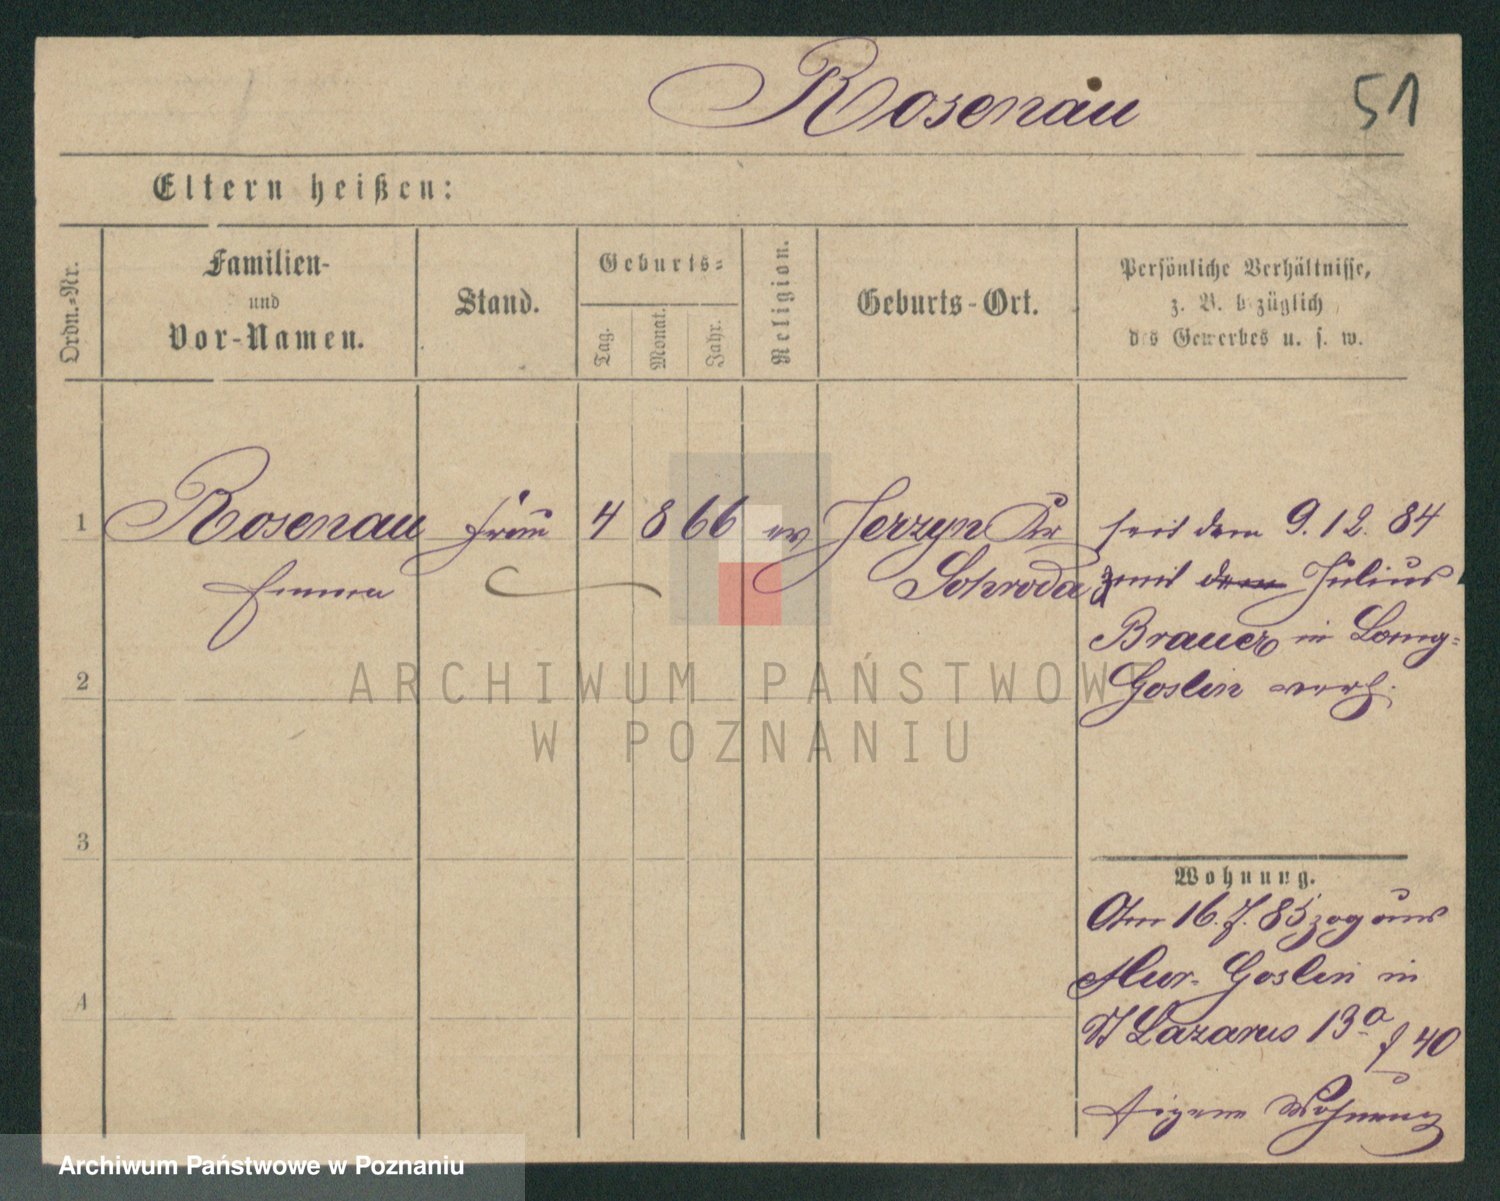 Rosenau
51
Eltern heißen:
Ordn.-Nr.
Familien-
und
Vor-Namen.
Stand.
Geburts-
Tag.
Monat.
Jahr.
Religion.
Geburts-Ort.
Persönliche Verhältnisse,
z. B. bezüglich
des Gewerbes u. s. w.
1 Rosenau Frau 4 8 66 ev Jerzyn Kr seit dem 9. 12. 84
Emma Schroda mit dem Julius
Brauer in Lang-
Goslin verh.
2
3
4
Wohnung.
Am 16. 7. 85 zog aus
Mur. Goslin in
St Lazarus 13a f 40
Eigene Wohnung
ARCHIWUM PAŃSTWOWE
W POZNANIU
Archiwum Państwowe w Poznaniu